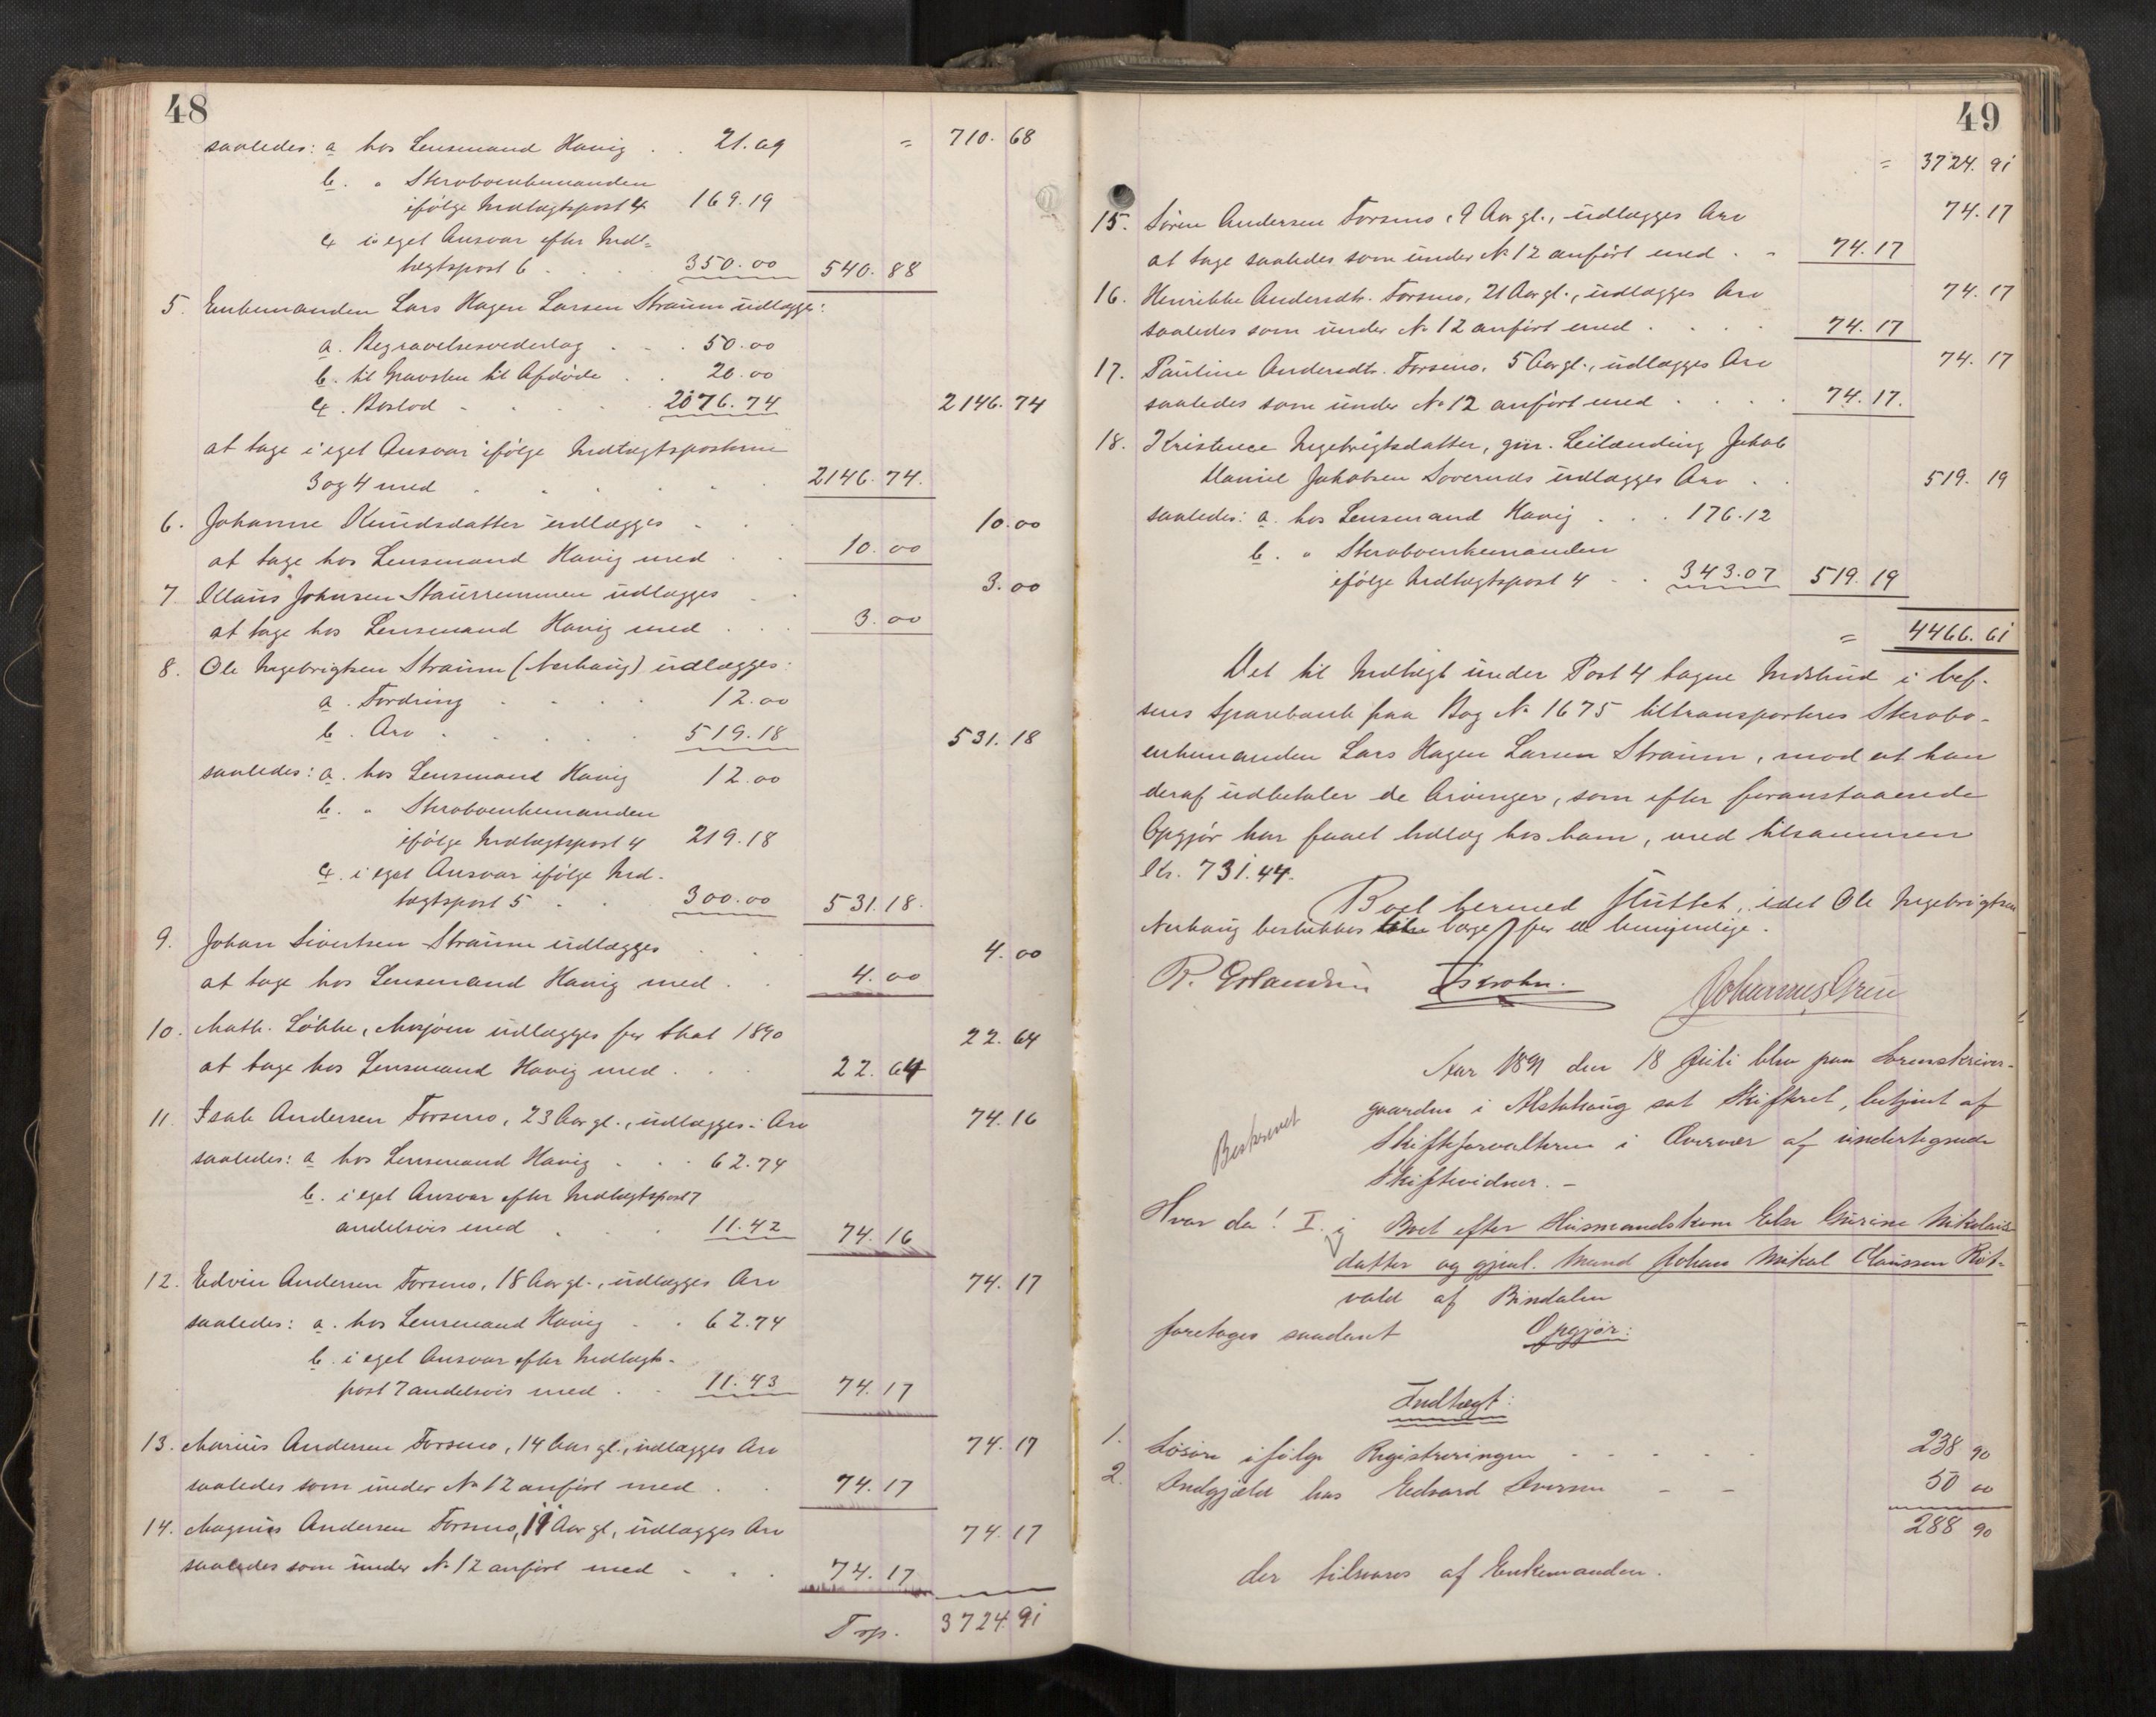 48
saaledes: a hos Lensmand Havig . . 21.69 = 710.68
b. " Stervboenkemanden
ifølge Indtægtspost 4 169.19
c i eget Ansvar efter Indt=
tægtspost 6 . . . 350.00 540.88
5. Enkemanden Lars Hagen Larsen Straum udlægges:
a. Begravelsesvederlag . . . 50.00
b. til Gravsten til Afdøde . . 20.00
c. Boslod . . . . 2076.74 2146.74
at tage i eget Ansvar ifølge Indtægtsposterne
3 og 4 med . . . . 2146.74.
6. Johanne Knudsdatter udlægges . . . 10.00
at tage hos Lensmand Havig med . . 10.00
7. Klaus Johnsen udlægges . . 3.00
at tage hos Lensmand Havig med . . . 3.00
8. Ole Ingebrigtsen Straum (Nerhaug) udlægges:
a. Fordring . . . . 12.00
b. Arv . . . . . 519.18 531.18
saaledes: a. hos Lensmand Havig 12.00
b. " Stervboenkemanden
ifølge Indtægtspost 4 219.18
c. i eget Ansvar ifølge Ind-
tægtspost 5 . . 300.00 531.18.
9. Johan Sivertsen Straum udlægges . . . 4.00
at tage hos Lensmand Havig med . . 4.00
10. Math. Løkke, Mosjøen udlægges for Skat 1890 22.64
at tage hos Lensmand Havig med . . . 22.64
11. Isak Andersen Forsmo, 23 Aar gl., udlægges i Arv 74.16
saaledes: a hos Lensmand Havig . . . 62.74
b. i eget Ansvar efter Indtægtspost 7
andelsvis med . . . 11.42 74.16
12. Edvin Andersen Forsmo, 18 Aar gl., udlægges Arv 74.17
saaledes: a. hos Lensmand Havig . . 62.74
b. i eget Ansvar efter Indtægts-
post 7 andelsvis med . . 11.43 74.17
13. Marius Andersen Forsmo, 14 Aar gl., udlægges Arv 74.17
saaledes som under No 12 anført med . . 74.17
14. Magnus Andersen Forsmo, 11 Aar gl, udlægges Arv 74.17
saaledes som under No 12 anført med . . . 74.17
Trp. 3724.91
49
= 3724.91
15. Søren Andersen Forsmo, 9 Aar gl., udlægges Arv 74.17
at tage saaledes som under No 12 anført med . . 74.17
16. Henrikke Andersdtr. Forsmo, 21 Aar gl., udlægges Arv 74.17
saaledes som under No 12 anført med . . . . 74.17
17. Pauline Andersdtr. Forsmo, 5 Aar gl., udlægges Arv 74.17
saaledes som under No 12 anført med . . . . 74.17.
18. Kristence Ingebrigtsdatter, gm. Leilænding Jakob
Daniel Jakobsen udlægges Arv . . 519.19
saaledes: a. hos Lensmand Havig . . . 176.12
b. " Stervboenkemanden
ifølge Indtægtspost 4 . . 343.07 519.19
= 4466.61
Det til Indtægt under Post 4 tagne Indskud i Vef-
sens Sparebank paa Bog No 1675 tiltransporteres Stervbo-
enkemanden Lars Hagen Larsen Straum, mod at han
deraf udbetaler de Arvinger, som efter foranstaaende
Opgjør har faaet Udlæg hos ham, med tilsammen
Kr. 731.44.
Boet hermed sluttet, idet Ole Ingebrigtsen
Nerhaug beskikkes Værge for de umyndige.
Johannes
Aar 1891 den 18 Juli blev paa Sorenskriver-
gaarden i Alstahaug sat Skifteret, betjent af
Skifteforvalteren i Overvær af undertegnede
Skiftevidner. –
Beskrevet
Hvor da! I. i Boet efter Husmandskone Else Gurine Nikolais-
datter og gjenl. Mand Johan Mikal Claussen
vald af Bindalen
foretoges saadant Opgjør:
Indtægt:
1. Løsøre ifølge Registreringen - - - - - 238 90
2. Indgjæld hos Edvard Iversen - - 50 00
288 90
der tilsvares af Enkemanden.